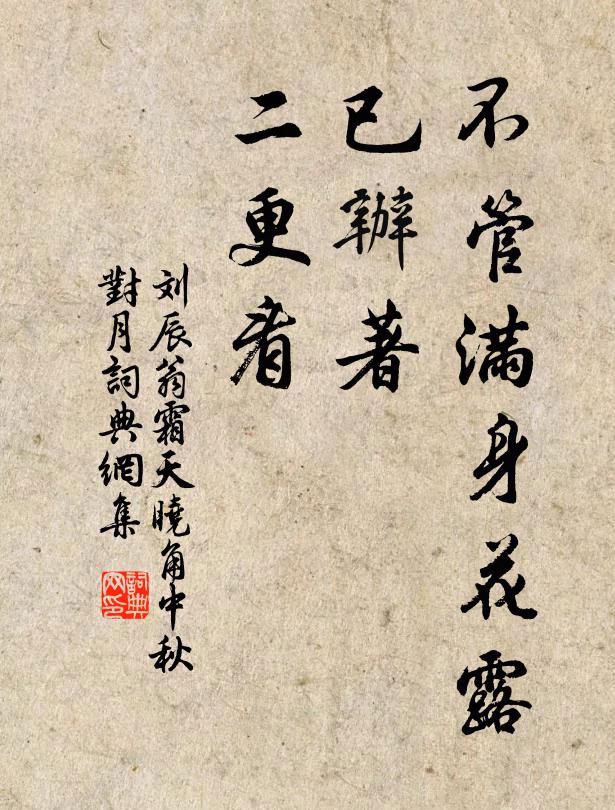 不管满身花露
已辦著
二更看
刘辰翁霜天曉角中秋
對月詞典網集
詞典网印